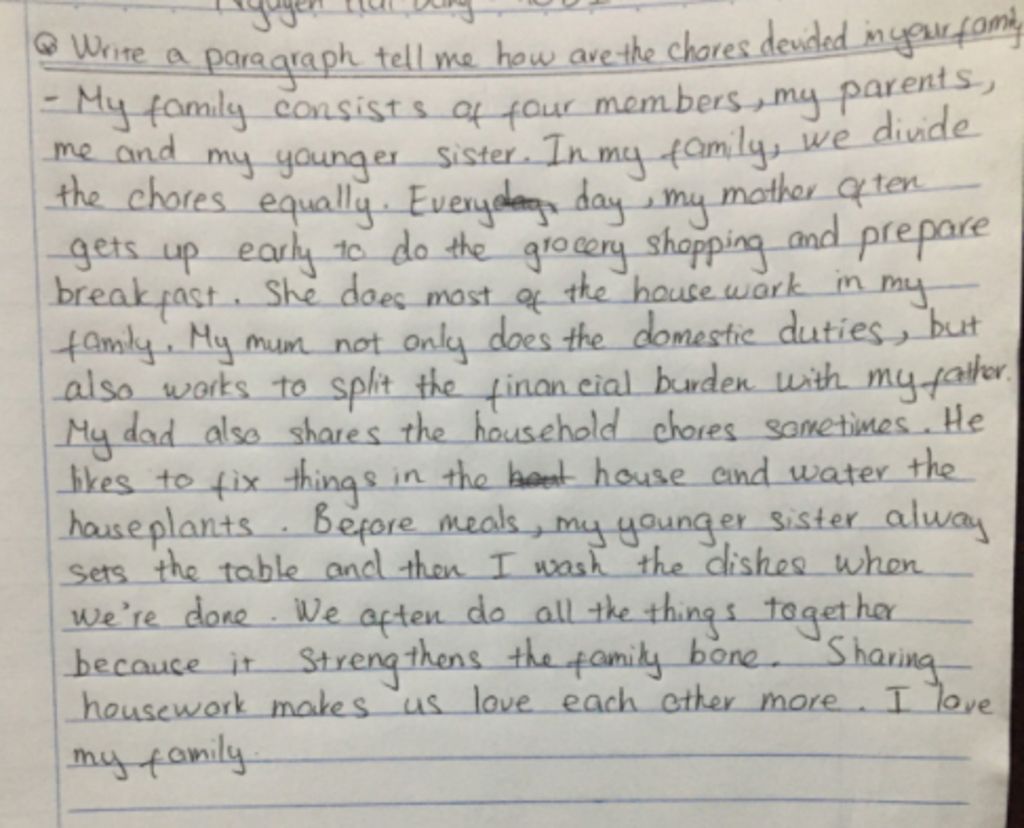 Write a paragraph tell me how are the chores devided in your family
- My family consists of four members, my parents,
me and my younger sister. In my family, we divide
the chores equally. Every day, my mother often
gets up early to do the grocery shopping and prepare
breakfast. She does most of the housework in my
family. My mum not only does the domestic duties, but
also works to split the financial burden with my father.
My dad also shares the household chores sometimes. He
likes to fix things in the house and water the
houseplants. Before meals, my younger sister alway
sets the table and then I wash the dishes when
we're done. We often do all the things together
because it strengthens the family bone. Sharing
housework makes us love each other more. I love
my family.